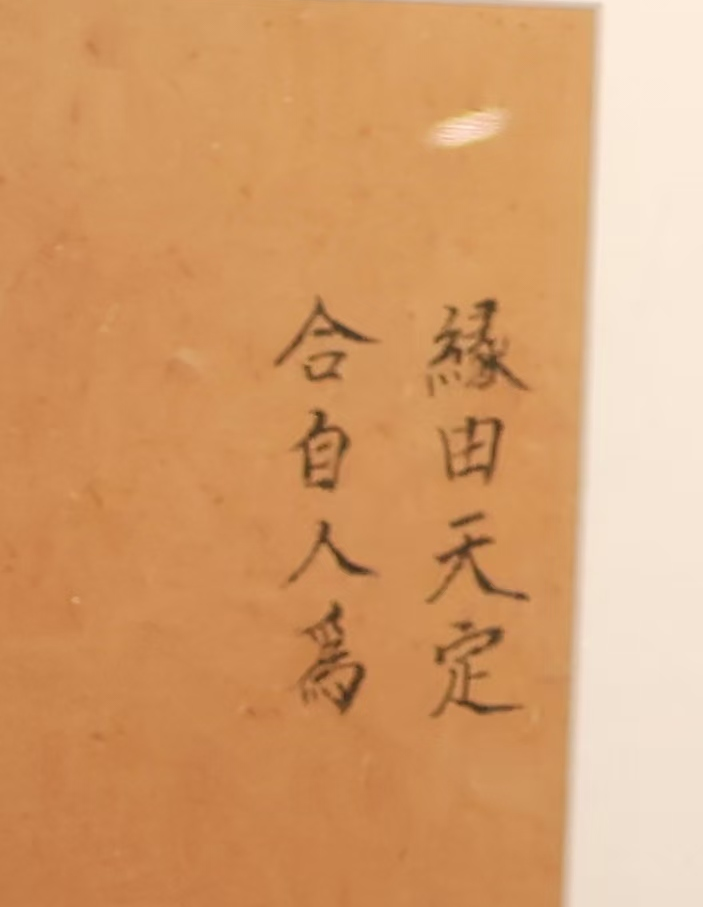 緣由天定
合自人爲